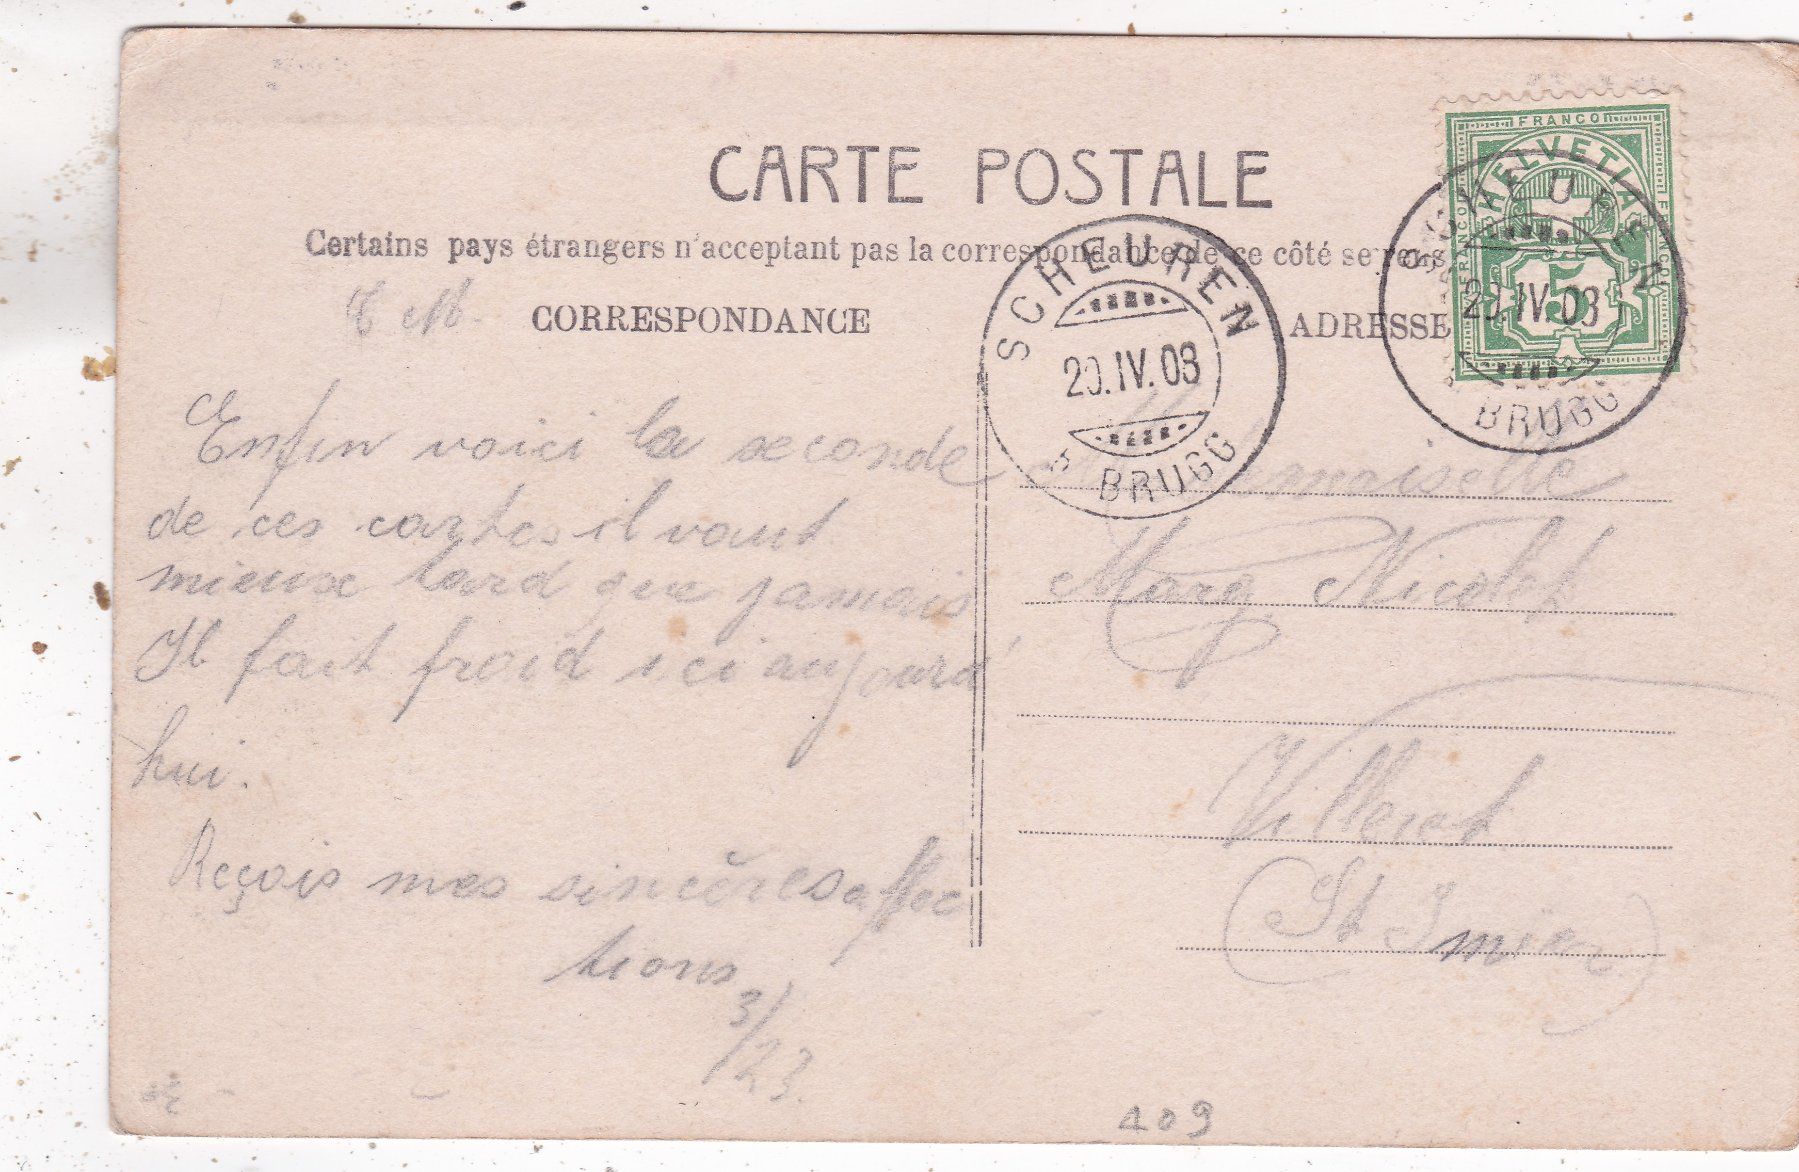 CARTE POSTALE
Certains pays étrangers n'acceptant pas la correspondance de ce côté se rens
CORRESPONDANCE
ADRESSE
FRANCO
HELVETIA
FRANCO
FRANCO
5
SCHEUREN
20.IV.08
BRUGG
SCHEUREN
20.IV.08
BRUGG
Enfin voici la seconde
de ces cartes il vaut
mieux tard que jamais
Il fait froid ici aujourd'
hui.
Reçois mes sincères affec
tions
3/23.
Mademoiselle
Marg. Nicolet
Villeret
St Imier
409